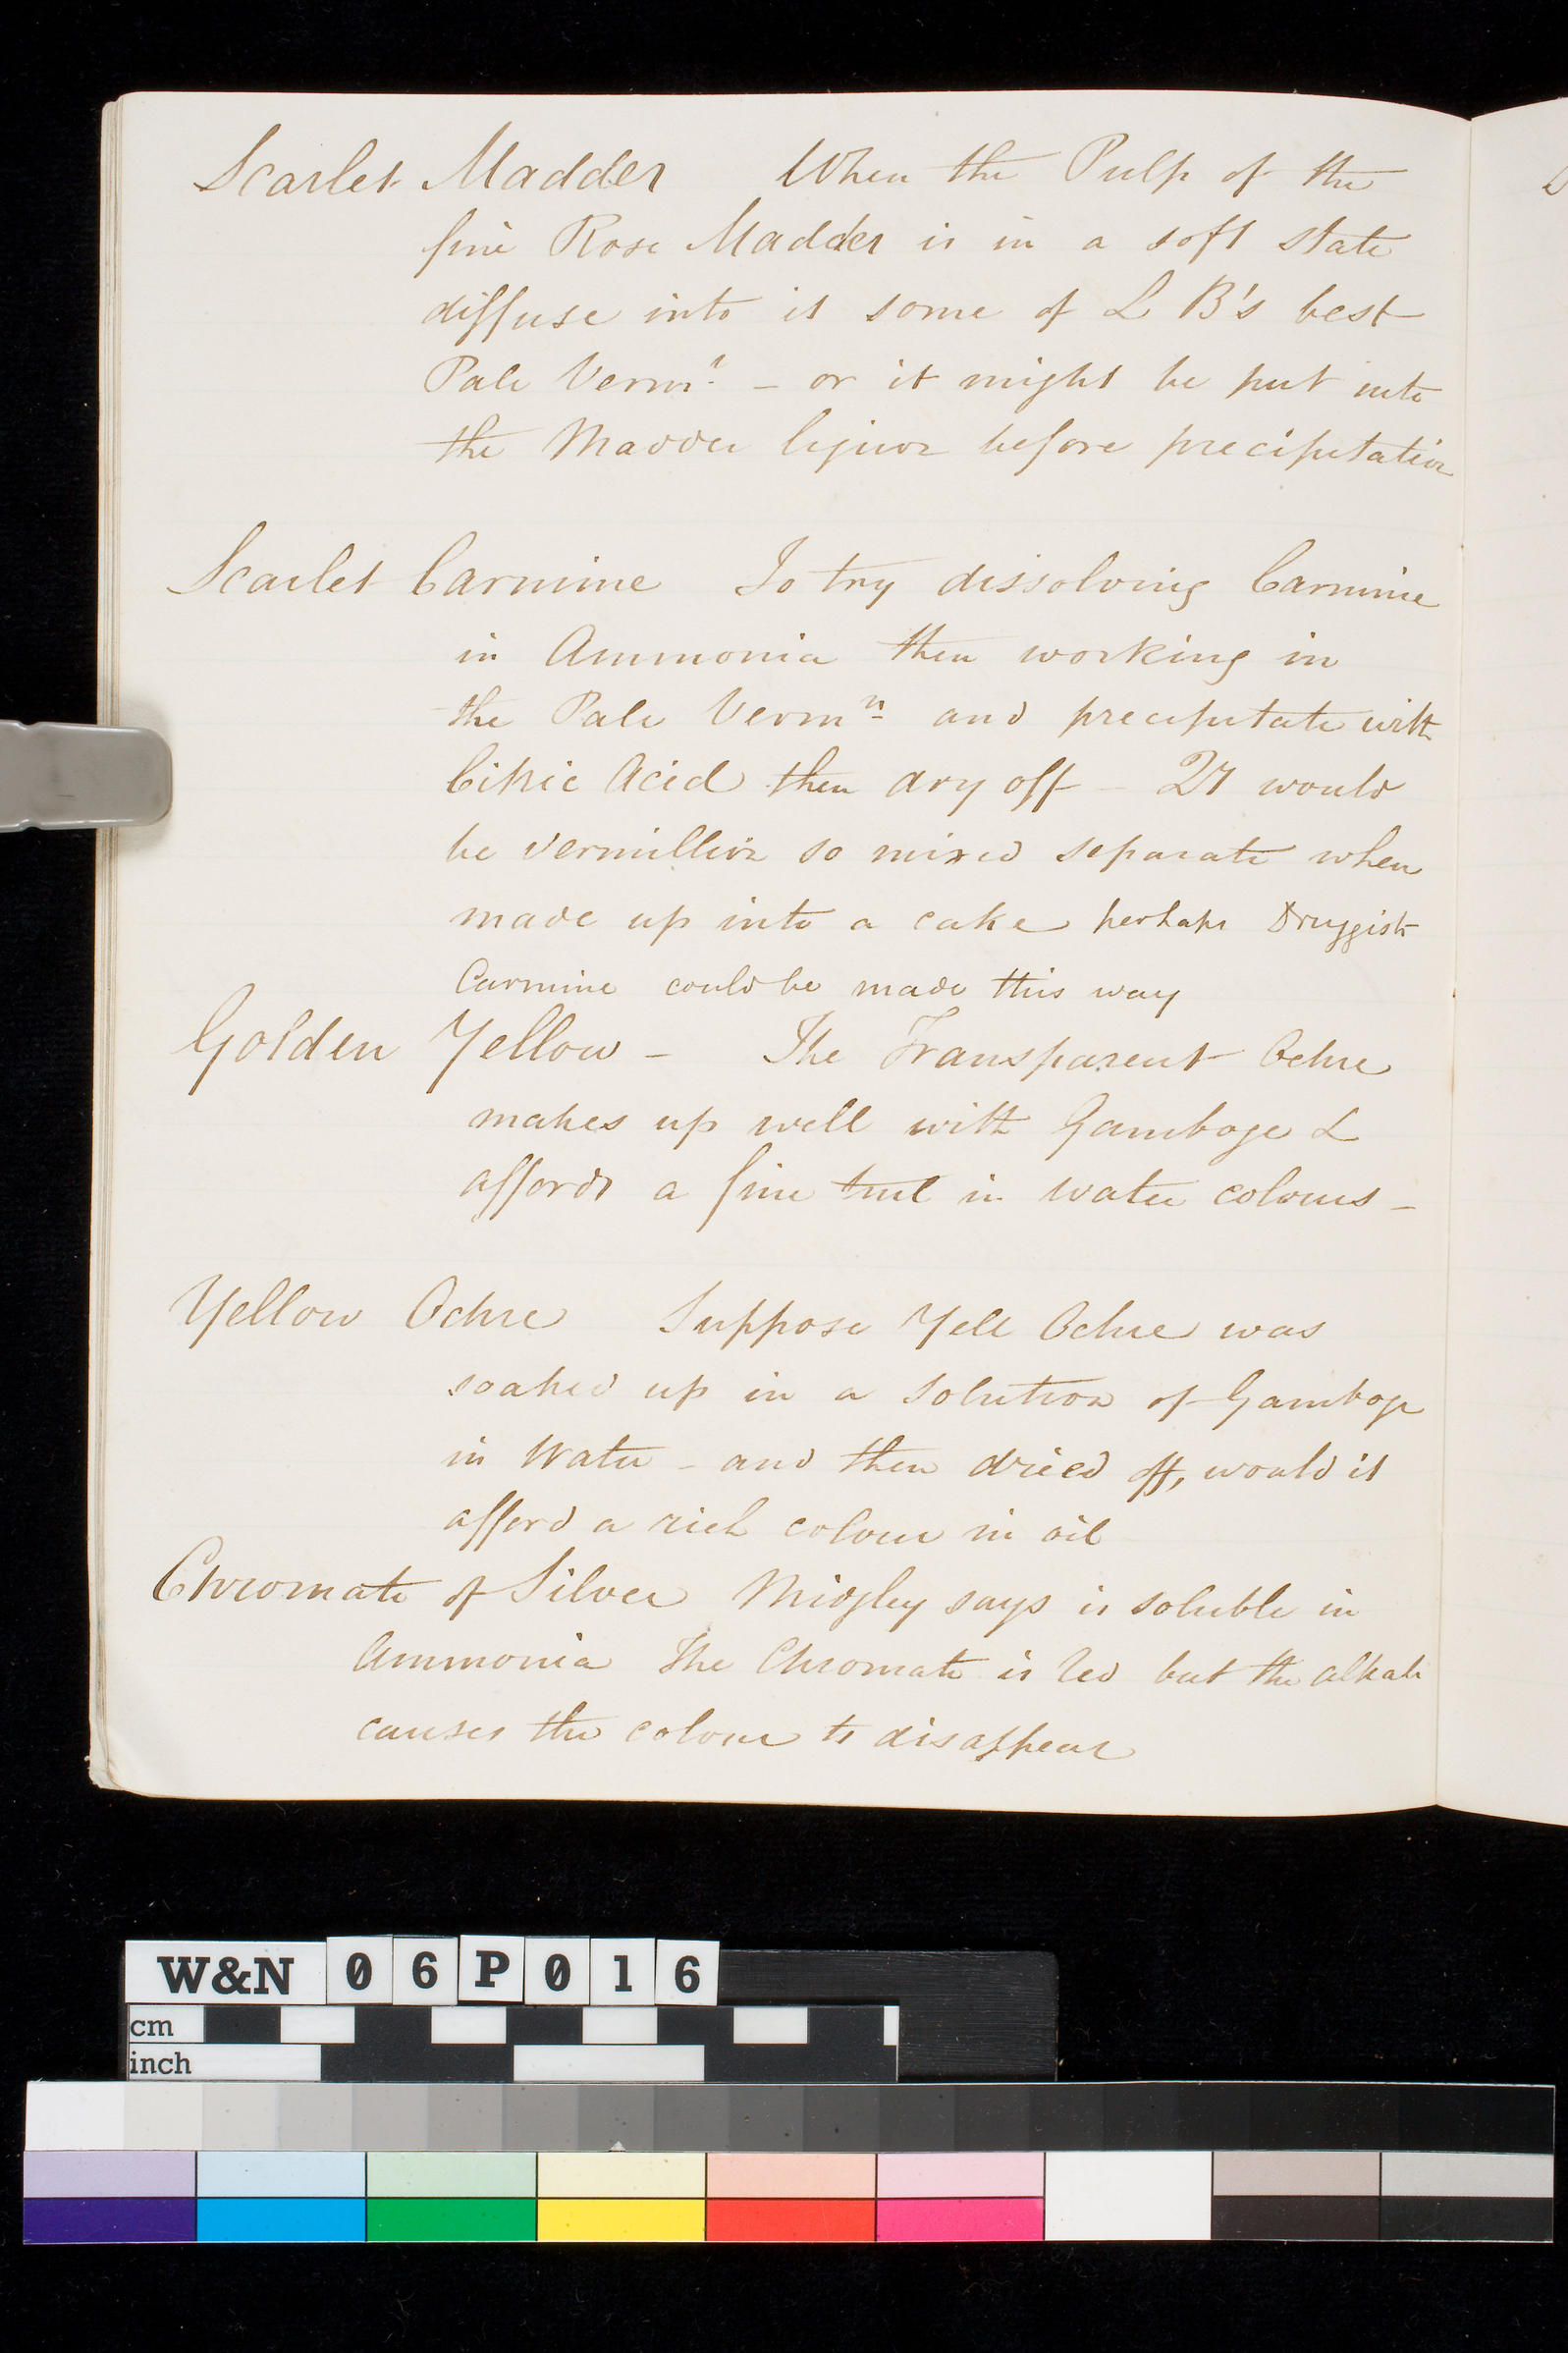 Scarlet Madder When the Pulp of the
fine Rose Madder is in a soft state
diffuse into it some of L B's best
Pale Verm.n – or it might be put into
the Madder liquor before precipitation
Scarlet Carmine To try dissolving Carmine
in Ammonia then working in
the Pale Vermn and precipitate with
Citric Acid then dry off – Qy would
be vermillion so mixed separate when
made up into a cake perhaps Druggists
Carmine could be made this way
Golden Yellow – The Transparent Ochre
makes up well with Gamboge &
affords a fine tint in water colours –
Yellow Ochre Suppose Yell Ochre was
soaked up in a solution of Gamboge
in Water – and then dried off, would it
afford a rich colour in oil
Chromate of Silver Midgley says is soluble in
Ammonia The Chromate is red but the alkali
causes the colour to disappear
W&N 06P016
cm
inch